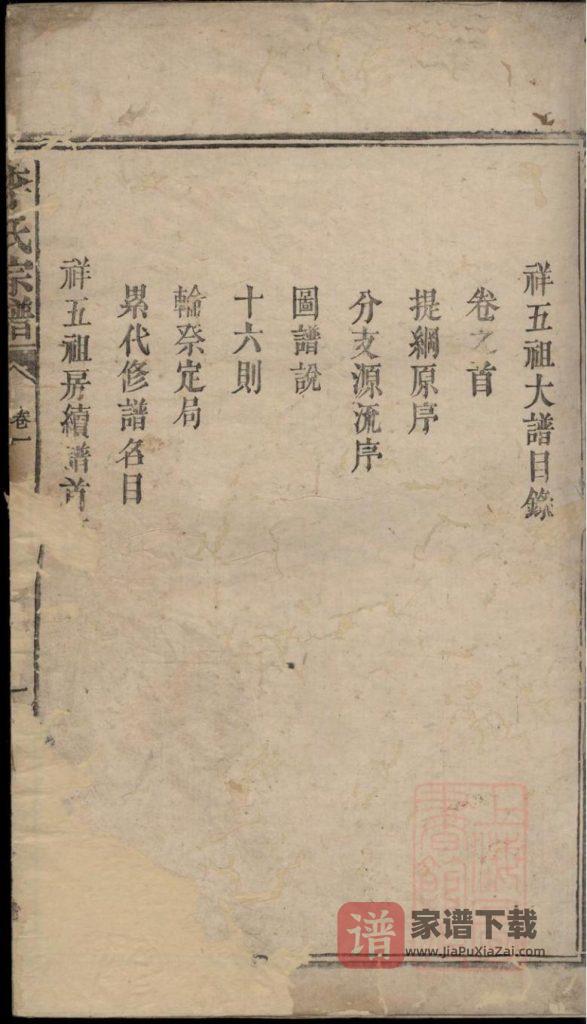 祥五祖大譜目錄
卷之首
提綱原序
分支源流序
圖譜說
十六則
輪祭定局
累代修譜名目
祥五祖房續譜首
李氏宗譜
卷一
一
上海
書館
谱
家谱下载
www.JiaPuXiaZai.com